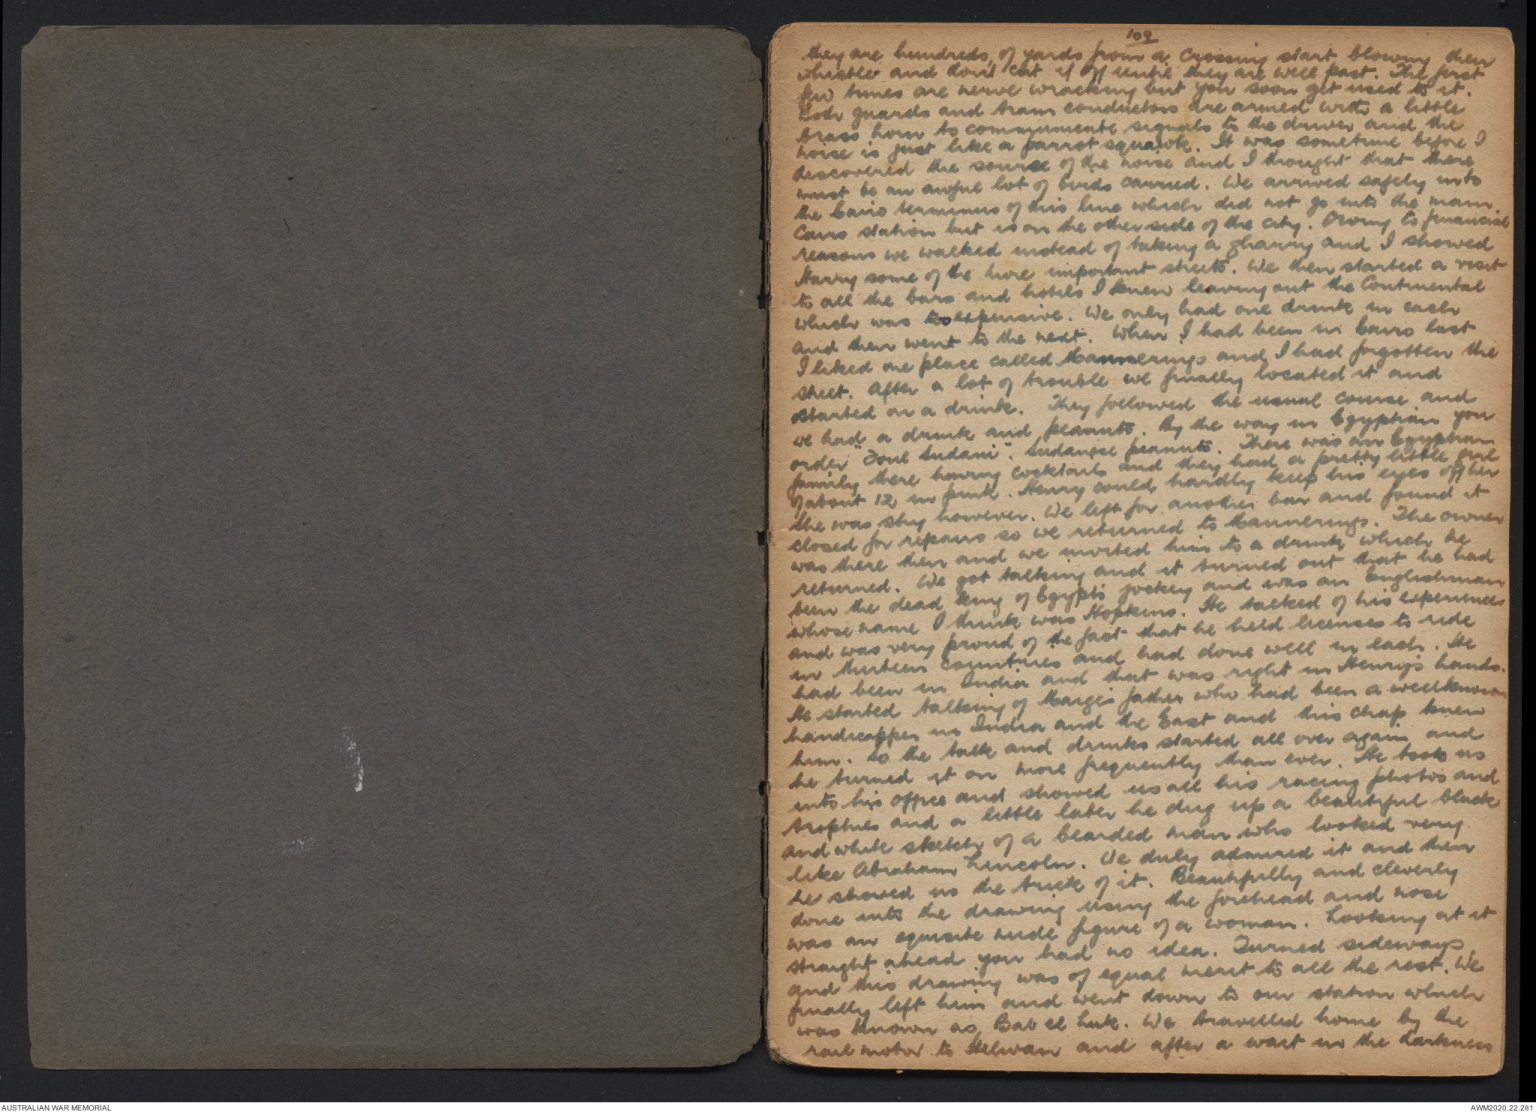 109
they are hundreds of yards from a crossing start blowing their
whistle and don't cut it off until they are well past. The first
few times are nerve wracking but you soon get used to it.
Both guards and tram conductors are armed with a little
brass horn to communicate signals to the driver and the
noise is just like a parrot squawk. It was sometime before I
discovered the source of the noise and I thought that there
must be an awful lot of birds carried. We arrived safely into
the Cairo terminus of this line which did not go into the main
Cairo station but is on the other side of the city. Owing to financial
reasons we walked instead of taking a gharry and I showed
Harry some of the more important streets. We then started a visit
to all the bars and hotels I knew leaving out the Continental
which was too expensive. We only had one drink in each
and then went to the next. When I had been in Cairo last
I liked one place called Mannerings and I had forgotten the
street. After a lot of trouble we finally located it and
started on a drink. They followed the usual course and
we had a drink and peanuts. By the way in Egyptian you
order "Foul Sudani". Sudanese peanuts. There was an Egyptian
family there having cocktails and they had a pretty little girl
of about 12 in pink. Henry could hardly keep his eyes off her
she was shy however. We left for another bar and found it
closed for repairs so we returned to Mannerings. The owner
was there then and we invited him to a drink which he
returned. We got talking and it turned out that he had
been the dead King of Egypt's jockey and was an Englishman
whose name I think was Hopkins. He talked of his experiences
and was very proud of the fact that he held licenses to ride
in thirteen countries and had done well in each. He
had been in India and that was right in Henry's hands.
He started talking of Marge's father who had been a wellknown
handicapper in India and the East and this chap knew
him. So the talk and drinks started all over again and
he turned it on more frequently than ever. He took us
into his office and showed us all his racing photos and
trophies and a little later he dug up a beautiful black
and white sketch of a bearded man who looked very
like Abraham Lincoln. We duly admired it and then
he showed us the trick of it. Beautifully and cleverly
done into the drawing using the forehead and nose
was an equisite nude figure of a woman. Looking at it
straight ahead you had no idea. Turned sideways
and this drawing was of equal merit to all the rest. We
finally left him and went down to our station which
was known as Bab el Luk. We travelled home by the
rail motor to Helwan and after a wait in the darkness
AUSTRALIAN WAR MEMORIAL
AWM2020.22.281